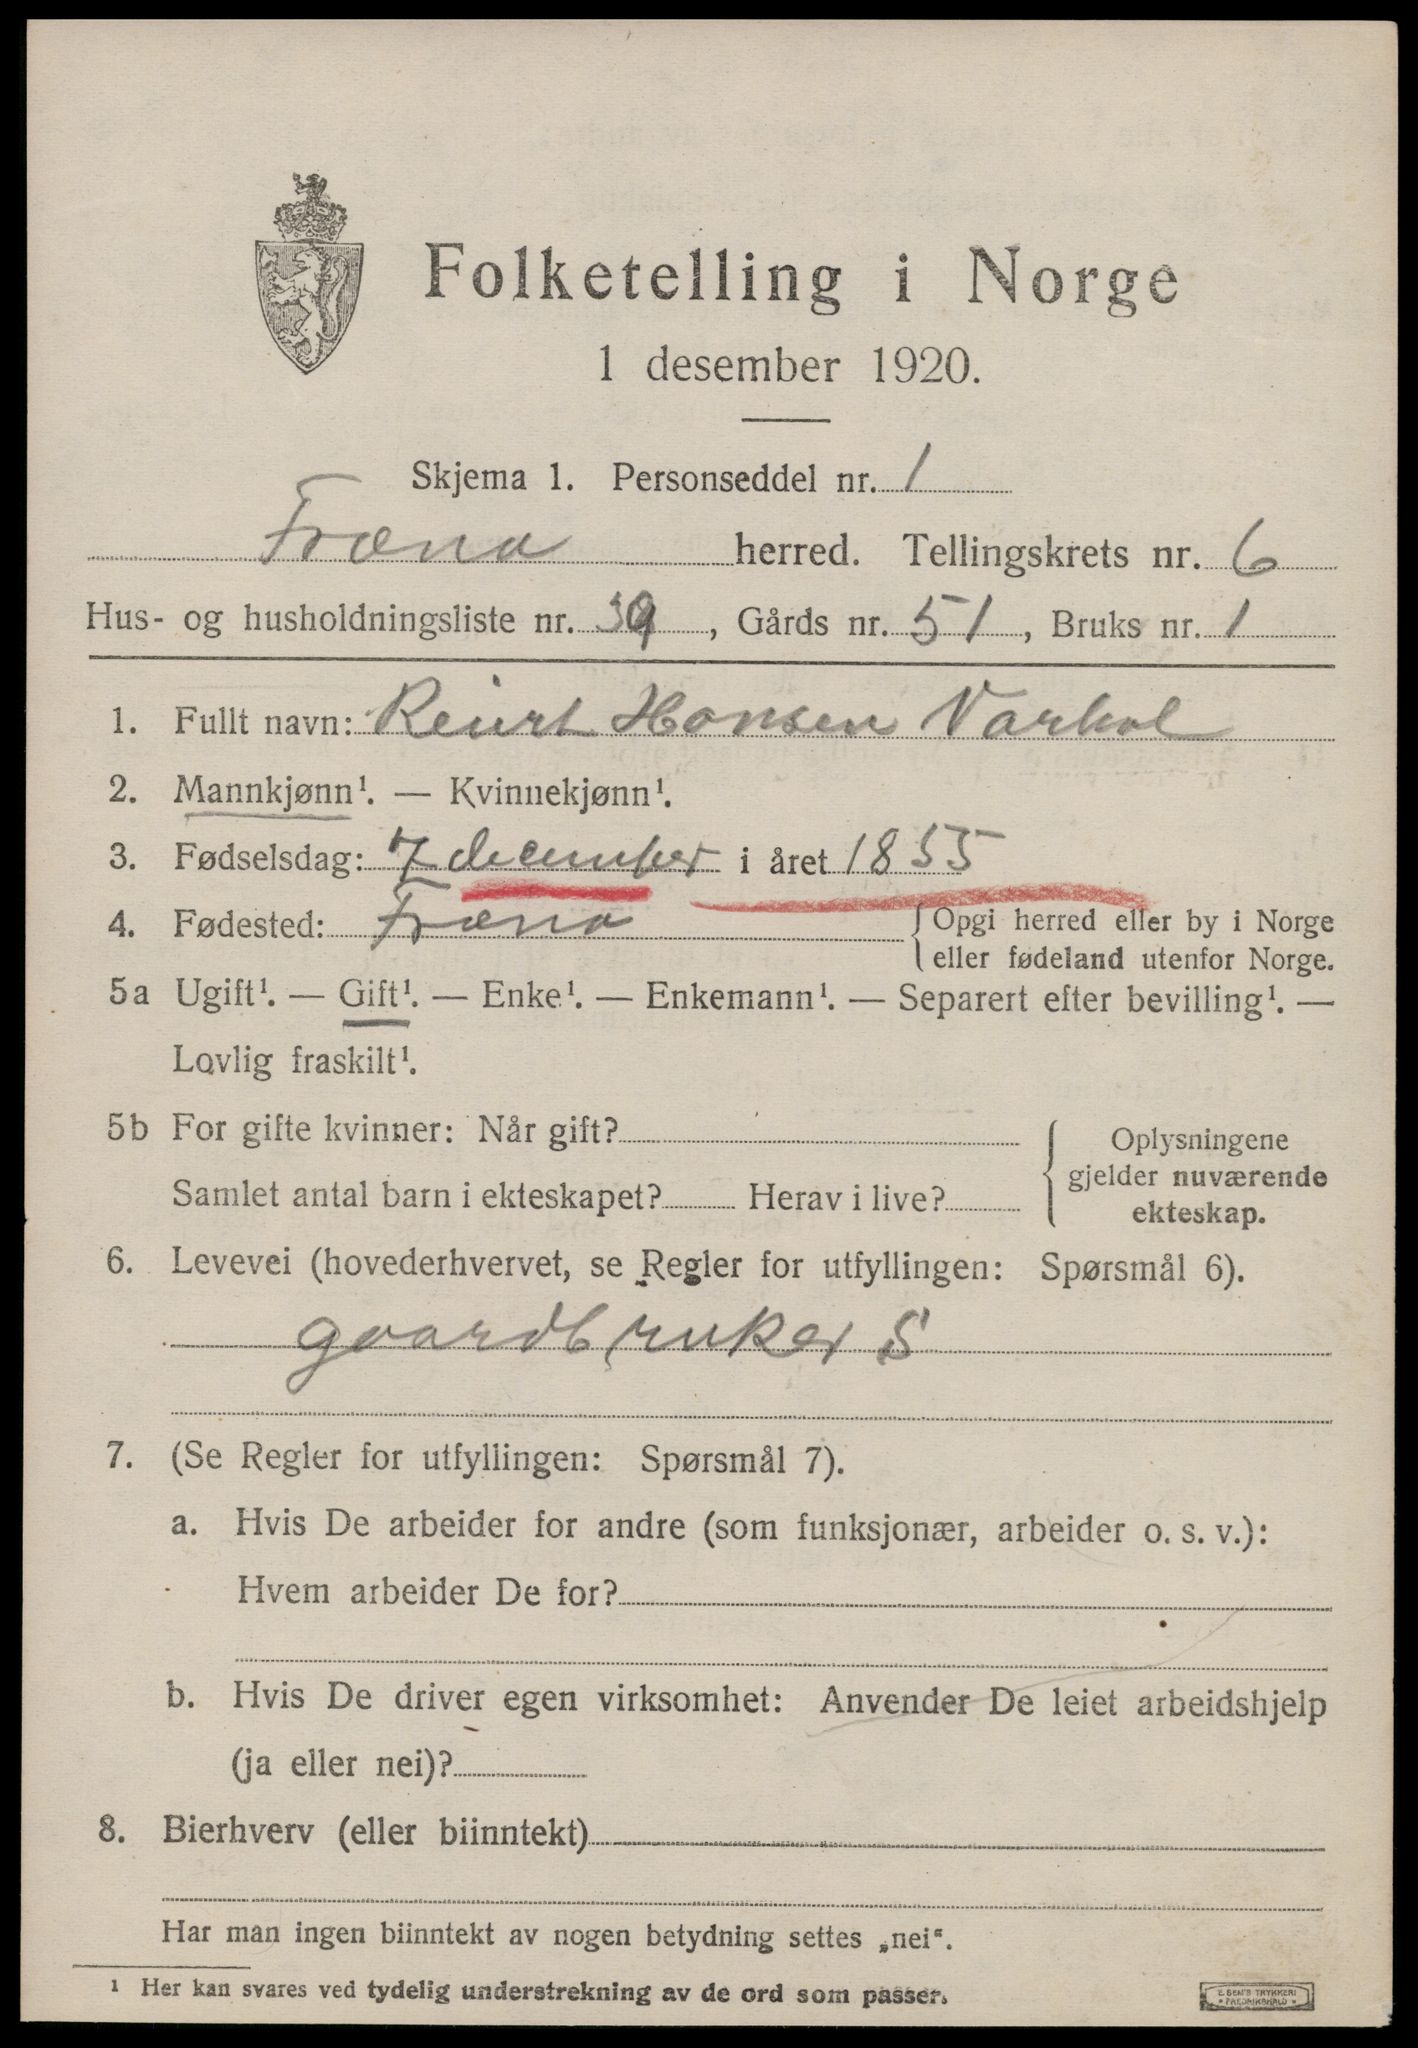 Folketelling i Norge
1 desember 1920.
Skjema 1. Personseddel nr. 1
Fræna herred. Tellingskrets nr. 6
Hus- og husholdningsliste nr. 39, Gårds nr. 51, Bruks nr. 1
1. Fullt navn: Hansen Varhol
2. Mannkjønn¹. — Kvinnekjønn¹.
3. Fødselsdag: 7 december i året 1855
4. Fødested: Fræna {Opgi herred eller by i Norge
eller fødeland utenfor Norge.
5a Ugift¹. — Gift¹. — Enke¹. — Enkemann¹. — Separert efter bevilling¹. —
Lovlig fraskilt¹.
5b For gifte kvinner: Når gift?
Samlet antal barn i ekteskapet? Herav i live?
Oplysningene
gjelder nuværende
ekteskap.
6. Levevei (hovederhvervet, se Regler for utfyllingen: Spørsmål 6).
gaardbruker S
7. (Se Regler for utfyllingen: Spørsmål 7).
a. Hvis De arbeider for andre (som funksjonær, arbeider o. s. v.):
Hvem arbeider De for?
b. Hvis De driver egen virksomhet: Anvender De leiet arbeidshjelp
(ja eller nei)?
8. Bierhverv (eller biinntekt)
Har man ingen biinntekt av nogen betydning settes „nei“.
¹ Her kan svares ved tydelig understrekning av de ord som passer.
E. SEM'S TRYKKERI
• FREDRIKSHALD •